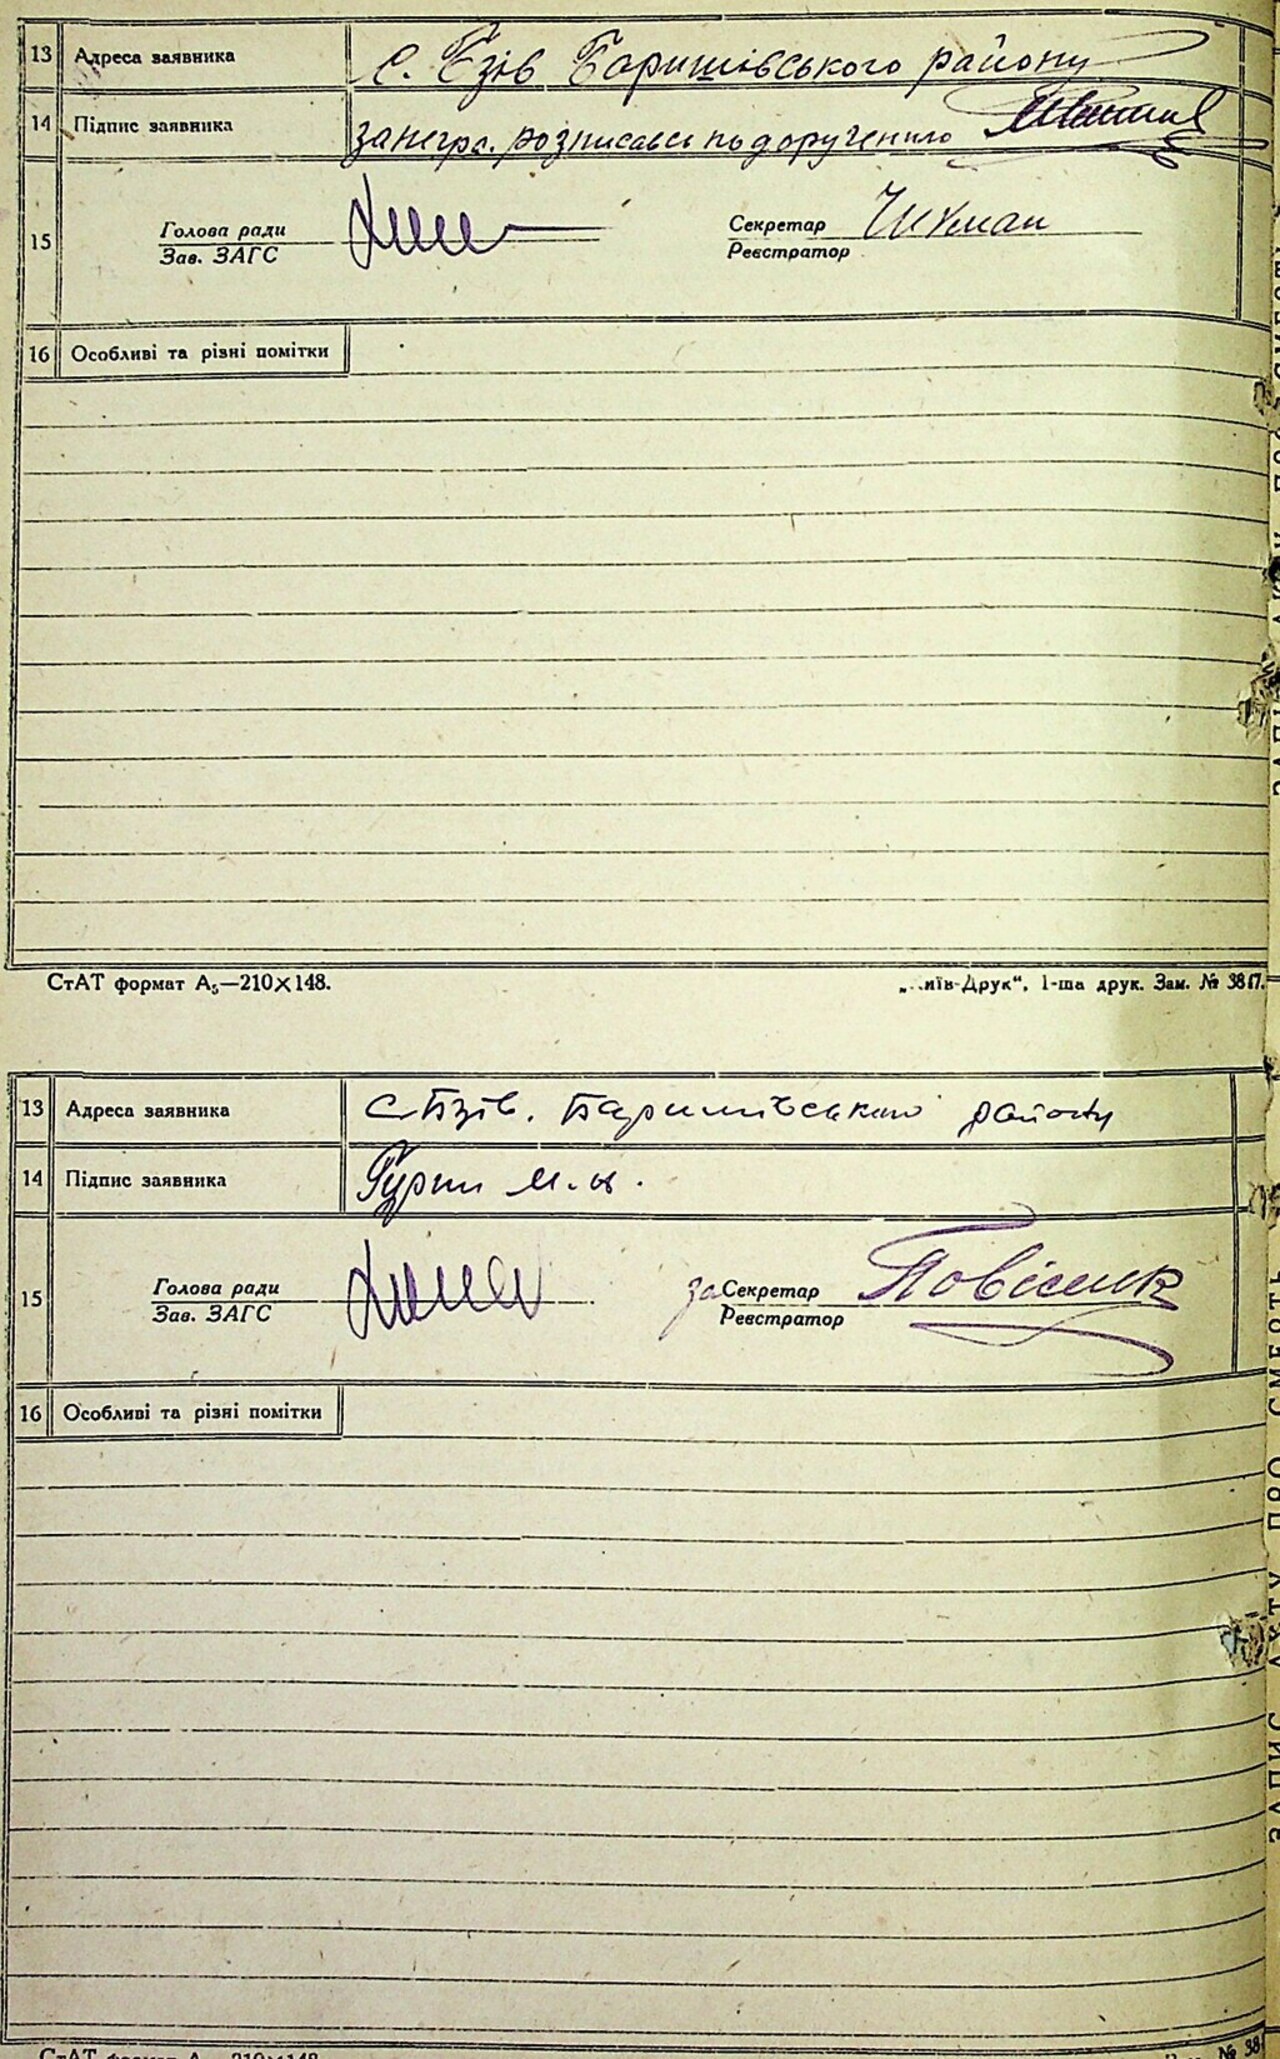 13 Адреса заявника с. Бзів Баришівського району
14 Підпис заявника за негра. розписавсь по дорученню
15 Голова ради Секретар
Зав. ЗАГС Реєстратор
16 Особливі та різні помітки
СтАТ формат А₅—210×148. „Київ-Друк“, 1-ша друк. Зам. № 3817.
13 Адреса заявника с. Бзів. Баришівського району
14 Підпис заявника Гурин М. И.
15 Голова ради за Секретар Повісенк
Зав. ЗАГС Реєстратор
16 Особливі та різні помітки
СтАТ формат А₅—210×148. № 38
ЗАПИС АКТУ ПРО СМЕРТЬ